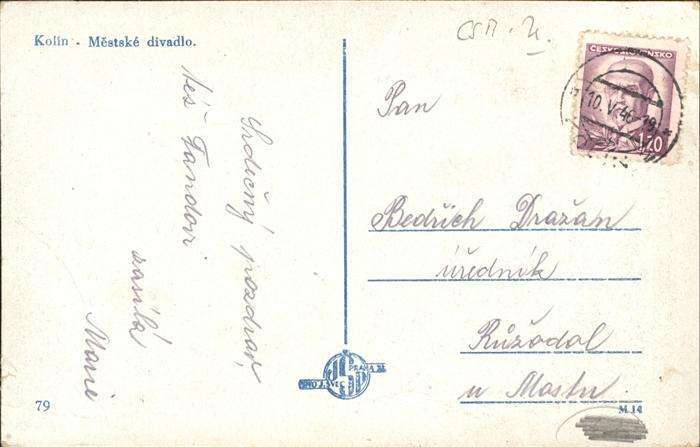 Kolín - Městské divadlo.
Srdečný pozdrav,
též Fandovi
zasílá
Marie
79
FOTO J. ŠVEC PRAHA XI.
ČSR. II.
ČESKOSLOVENSKO
10. V. 46-19
1.20
Pan
Bedřich Dražan
úředník
Růžodol
u Mostu
M 14